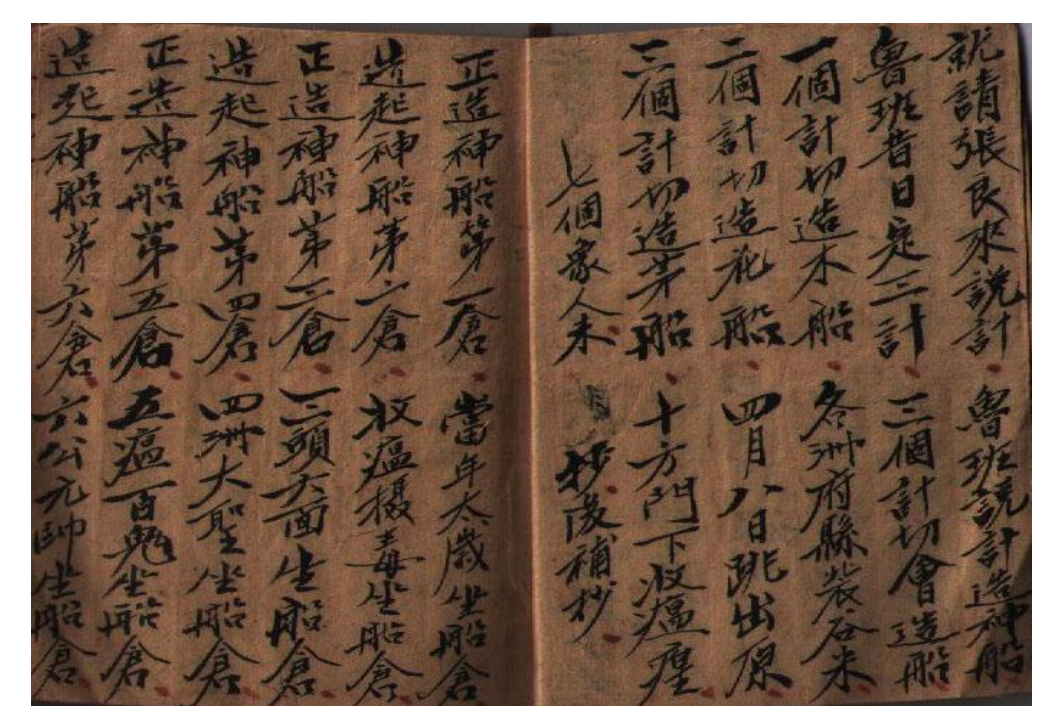 就請張良來說計魯班説計造神船
魯班昔日定三計三個計切會造船
一個計切造木船各洲府縣裝谷米
二個計切造花船四月八日跳出原
三個計切造茅船十方門下收瘟瘽
七個家人未抄後補抄
正造神船第一倉當年太歲坐船倉
造起神船第二倉收瘟摄毒坐船倉
正造神船第三倉一二頭六面坐船倉
造起神船第四倉四洲大聖坐船倉
正造神船第五倉五瘟百鬼坐船倉
造起神船第六倉六公元帥坐船倉